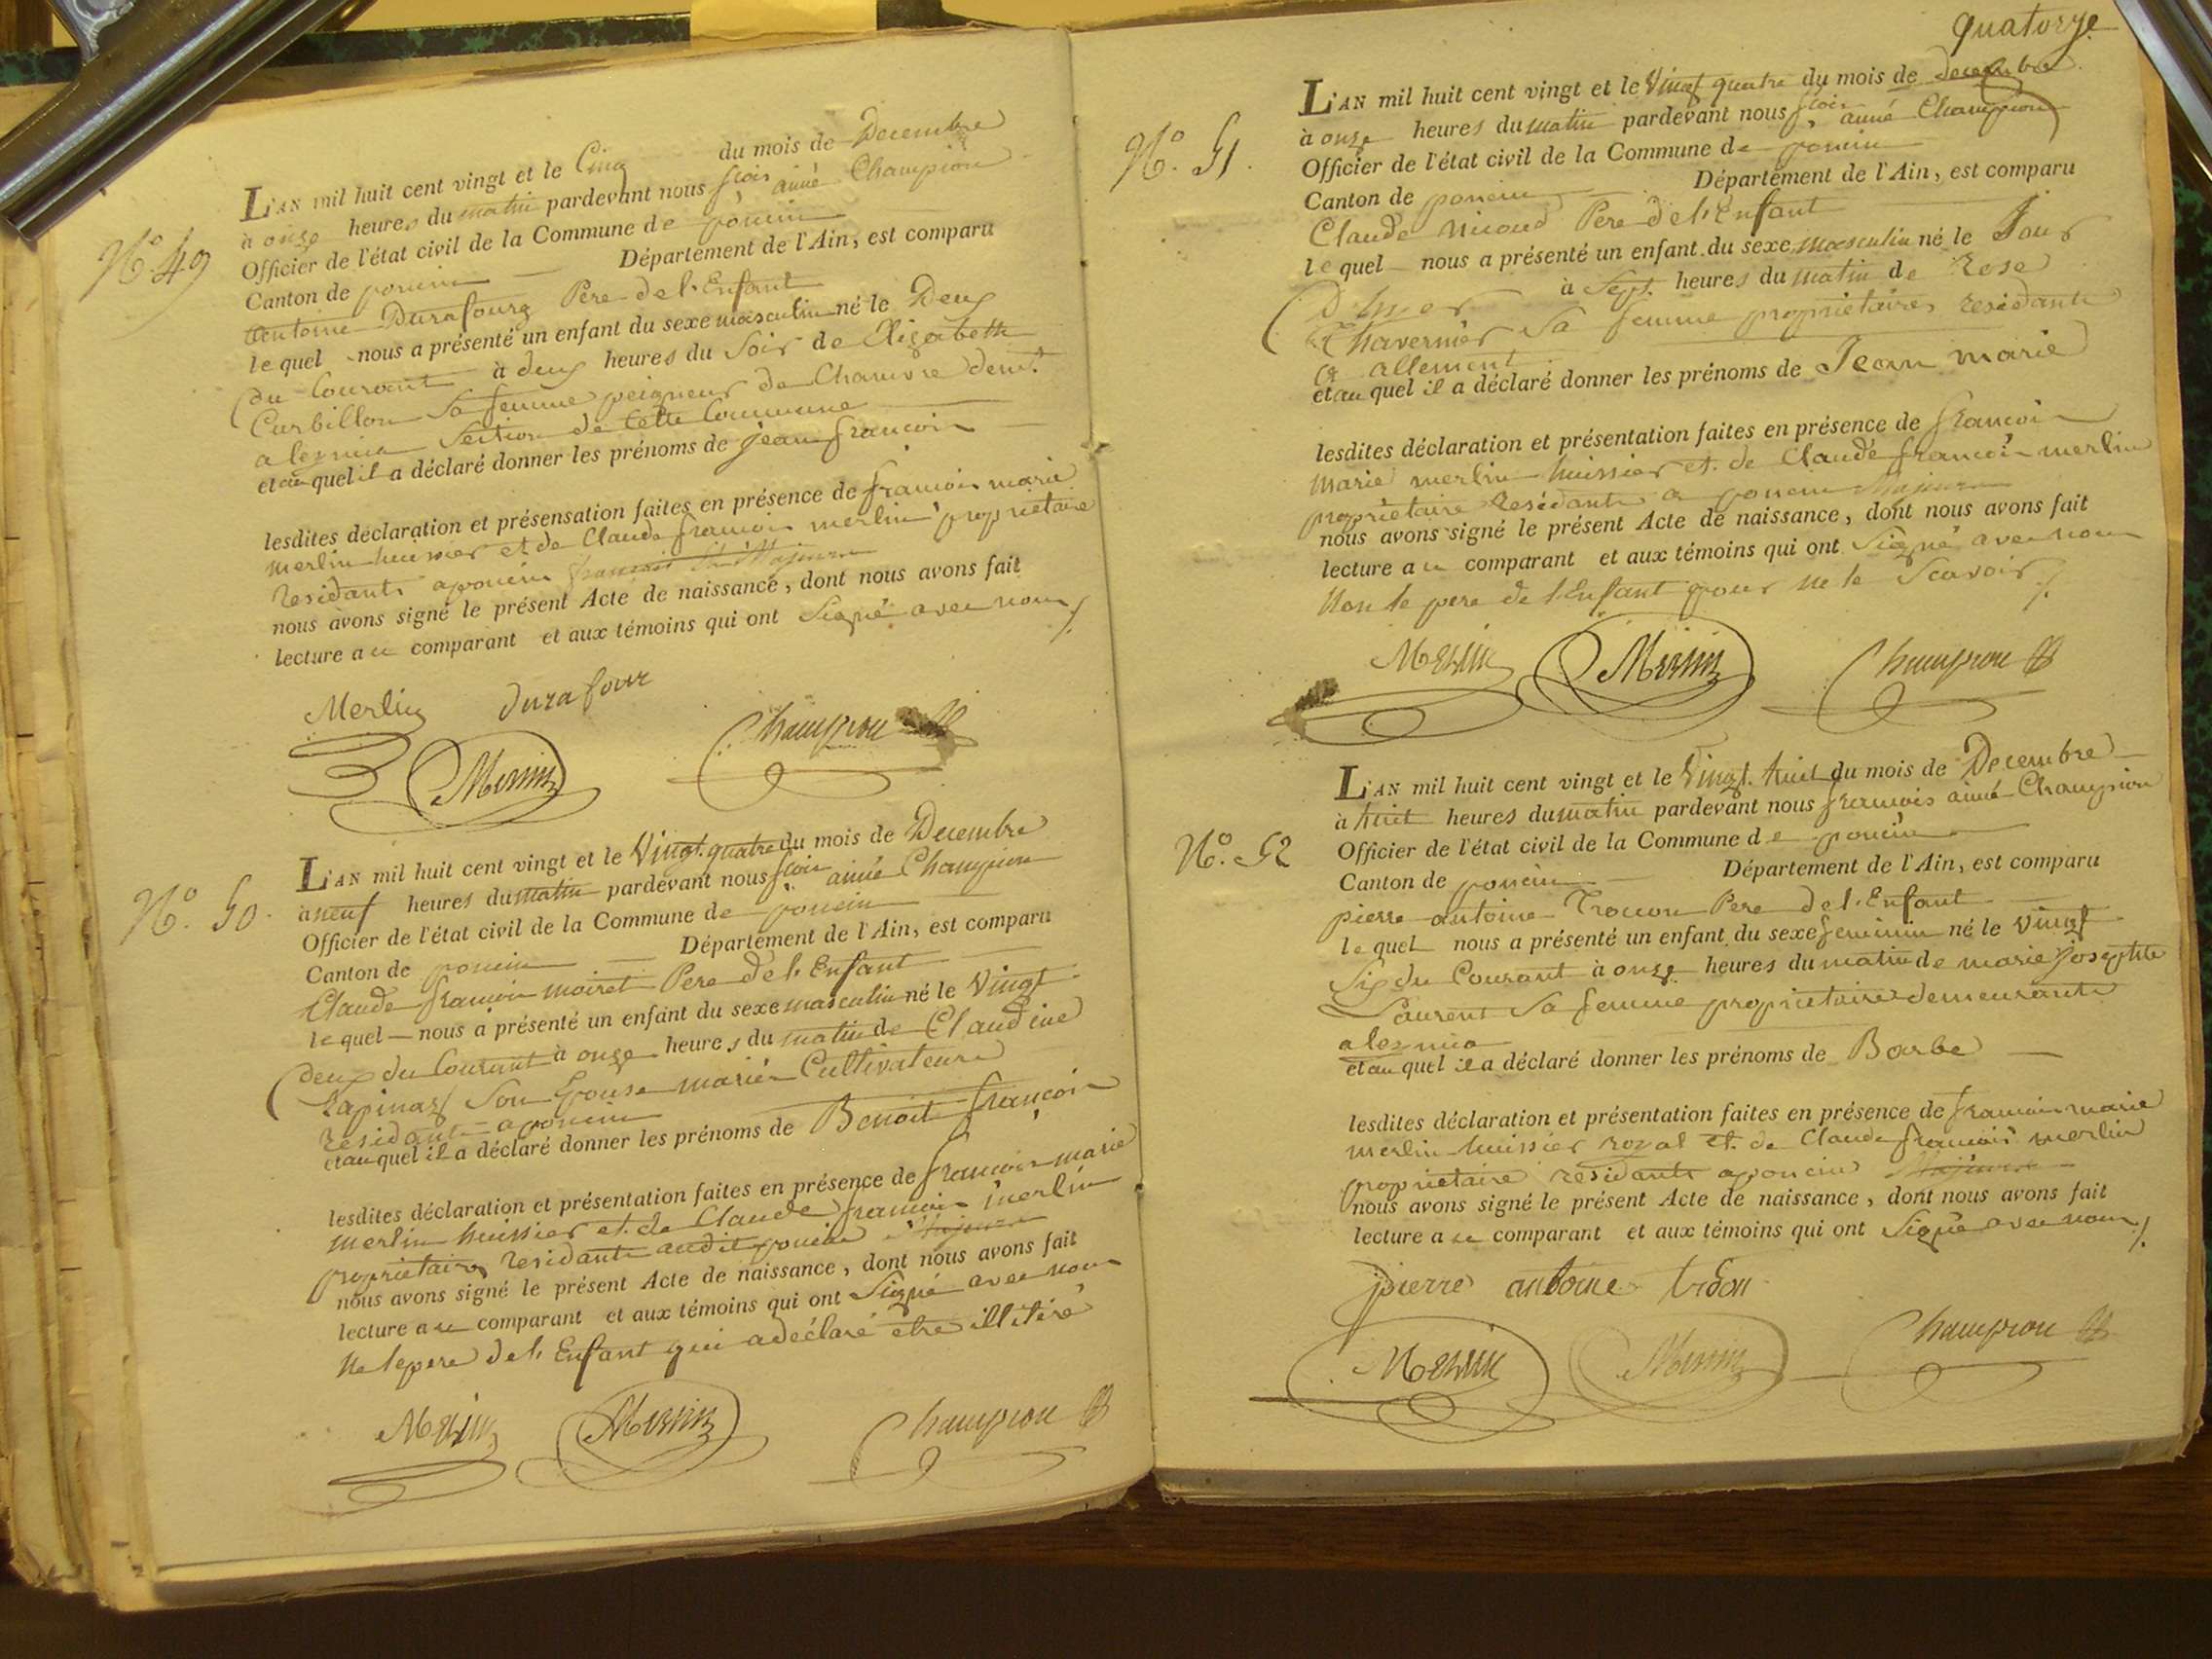 N.º 49
L'AN mil huit cent vingt et le Cinq du mois de Decembre
à onze heures du matin pardevant nous fcois aimé Champion
Officier de l'état civil de la Commune de poncin
Canton de poncin Département de l'Ain, est comparu
antoine Durafourg Pere de l'Enfant
le quel nous a présenté un enfant du sexe masculin né le Deux
du Courant à deux heures du Soir de Elizabeth
Curbillon Sa femme peigneur de Chanvre demt.
a leznia Section de Cette Commune
et au quel il a déclaré donner les prénoms de jean francois
lesdites déclaration et présensation faites en présence de francois marie
merlin huissier et de Claude francois merlin proprietaire
residants a poncin
nous avons signé le présent Acte de naissance, dont nous avons fait
lecture a ce comparant et aux témoins qui ont Signé avec nous
Merlin durafour
Merlin Champion
N.º 50.
L'AN mil huit cent vingt et le Vingt quatre du mois de Decembre
à neuf heures du matin pardevant nous fcois aimé Champion
Officier de l'état civil de la Commune de poncin
Canton de poncin Département de l'Ain, est comparu
Claude francois moiret Pere de l'Enfant
le quel nous a présenté un enfant du sexe masculin né le Vingt
deux du Courant à onze heures du matin de Claudine
Rapinaz Son Epouse mariés Cultivateurs
residants a poncin
et au quel il a déclaré donner les prénoms de Benoit françois
lesdites déclaration et présentation faites en présence de francois marie
merlin huissier et de Claude francois merlin
proprietaires residants audit poncin Majeurs
nous avons signé le présent Acte de naissance, dont nous avons fait
lecture a ce comparant et aux témoins qui ont Signé avec nous
Ne le pere de l'Enfant qui a déclaré être illitéré
Merlin Merlin Champion
quatorze
N.º 51.
L'AN mil huit cent vingt et le Vingt quatre du mois de decembre
à onze heures du matin pardevant nous fcois aimé Champion
Officier de l'état civil de la Commune de poncin
Canton de poncin Département de l'Ain, est comparu
Claude nicoud Pere de l'Enfant
le quel nous a présenté un enfant du sexe masculin né le Jour
D'hyer à Sept heures du matin de Rose
Chavernier Sa femme proprietaires residants
a allement
et au quel il a déclaré donner les prénoms de Jean marie
lesdites déclaration et présentation faites en présence de francois
marie merlin huissier et de Claude francois merlin
proprietaire Residants a poncin Majeurs
nous avons signé le présent Acte de naissance, dont nous avons fait
lecture a ce comparant et aux témoins qui ont Signé avec nous
Non le pere de l'Enfant pour ne le Scavoir
Merlin Merlin Champion
N.º 52
L'AN mil huit cent vingt et le Vingt huit du mois de Decembre
à huit heures du matin pardevant nous francois aimé Champion
Officier de l'état civil de la Commune de poncin
Canton de poncin Département de l'Ain, est comparu
pierre antoine Trocon Pere de l'Enfant
le quel nous a présenté un enfant du sexe feminin né le vingt
Six du Courant à onze heures du matin de marie Josephte
Laurent Sa femme proprietaires demeurants
a leznia
et au quel il a déclaré donner les prénoms de Barbe
lesdites déclaration et présentation faites en présence de francois marie
merlin huissier royal et de Claude francois merlin
proprietaire residants a poncin Majeurs
nous avons signé le présent Acte de naissance, dont nous avons fait
lecture a ce comparant et aux témoins qui ont Signé avec nous
pierre antoine trocon
Merlin Merlin Champion